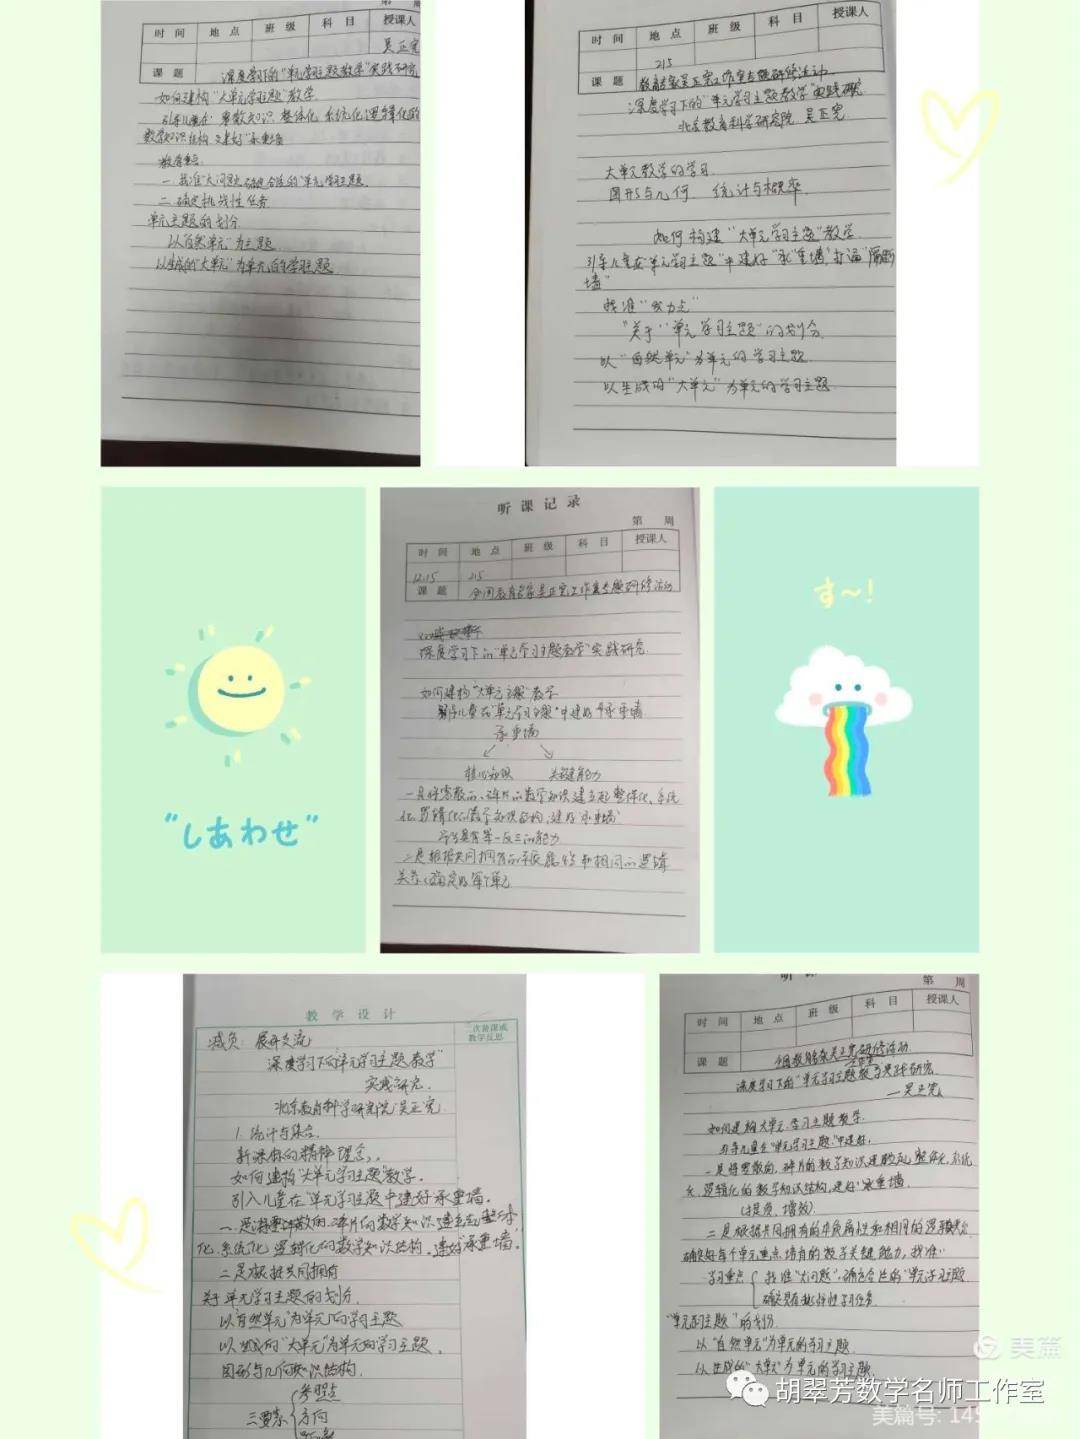 周
时 间 地 点 班 级 科 目 授课人
吴正宪
课 题 深度学习下的“单元学习主题教学”实践研究
如何建构“大单元学习主题”教学
引导儿童在 零散知识 整体化 系统化 逻辑化的
数学知识结构 建好“承重墙
教学重点
一.找准“大问题”确定合适的“单元学习主题.
二.确定挑战性任务
单元主题的划分
以“自然单元”为主题
以生成的“大单元”为单元的学习主题
时 间 地 点 班 级 科 目 授课人
215
课 题 教育专家吴正宪工作室专题研修活动
深度学习下的“单元学习主题教学”实践研究
北京教育科学研究院 吴正宪
大单元教学的学习
图形与几何 统计与概率
如何构建“大单元学习主题”教学
引导儿童在“单元学习主题”中建好“承”重墙”,打通“隔断
墙”
找准“发力点”
“关于“单元学习主题”的划分
以“自然单元”为单元的学习主题
以生成的“大单元”为单元的学习主题
听 课 记 录
第 周
时 间 地 点 班 级 科 目 授课人
12.15 215
课 题 全国教育名家吴正宪工作室专题研修活动
深度学习下的“单元学习主题教学”实践研究
如何建构“大单元主题”教学
引导儿童在“单元学习主题”中建好“承重墙
承重墙
核心知识 关键能力
一是将零散的、碎片的数学知识建立起整体化、系统
化、逻辑化的数学知识结构,建好“承重墙”
学生具有举一反三的能力
二是根据共同拥有的本质属性和相同的逻辑
关系,确定好每个单元
す〜!
“しあわせ”
教 学 设 计
二次备课或
教学反思
减负: 展开交流
“深度学习下的单元学习主题教学”
实践研究.
北京教育科学研究院 吴正宪.
1. 统计与集合.
新课标的精神理念,.
如何建构“大单元学习主题”教学.
引入儿童在“单元学习主题中建好承重墙.
一.是将零散的、碎片的数学知识建立起整体
化、系统化,逻辑化的数学知识结构.建好“承重墙.
二是根据共同拥有
关于单元学习主题的划分.
以“自然单元”为单元的学习主题
以生成的“大单元”为单元的学习主题.
图形与几何知识结构.
三要素 参照点
方向
听 课
第 周
时 间 地 点 班 级 科 目 授课人
课 题
深度学习下的“单元学习主题教学”实践研究
—吴正宪
如何建构大单元学习主题教学
引导儿童在“单元学习主题”中建好
一是将零散的,碎片的数学知识建立起整体化,系统
化.逻辑化的数学知识结构,建好“承重墙
(提质、增效)
二是根据共同拥有的本质属性和相同的逻辑关系
确定好每个单元重点培育的数学关键能力,找准
学习重点 找准“大问题”,确定合适的“单元学习主题
确定具有挑战性学习任务
“单元学习主题”的划分
以“自然单元”为单元的学习主题
以生成的“大单元”为单元的学习主题
美篇
胡翠芳数学名师工作室
美篇号: 149